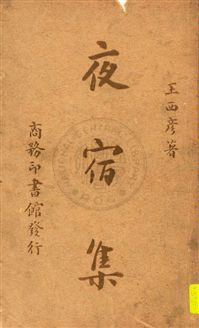 王西彦著
夜宿集
商務印書館發行